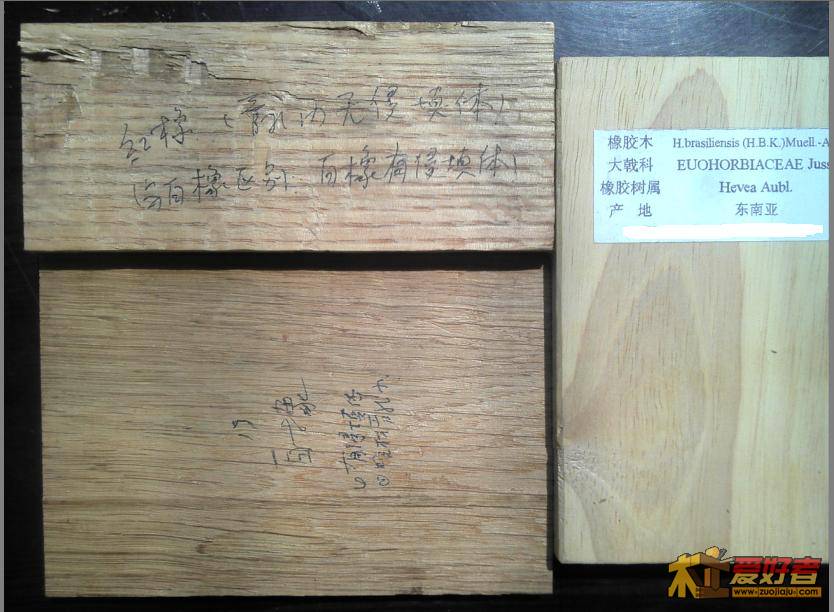 红橡（管孔内无侵填体）
与白橡区别：白橡有侵填体）
白橡
①有侵填体
橡胶木 H.brasiliensis (H.B.K.)Muell.-A
大戟科 EUOHORBIACEAE Juss
橡胶树属 Hevea Aubl.
产 地 东南亚
木工爱好者
www.zuojiaju.com